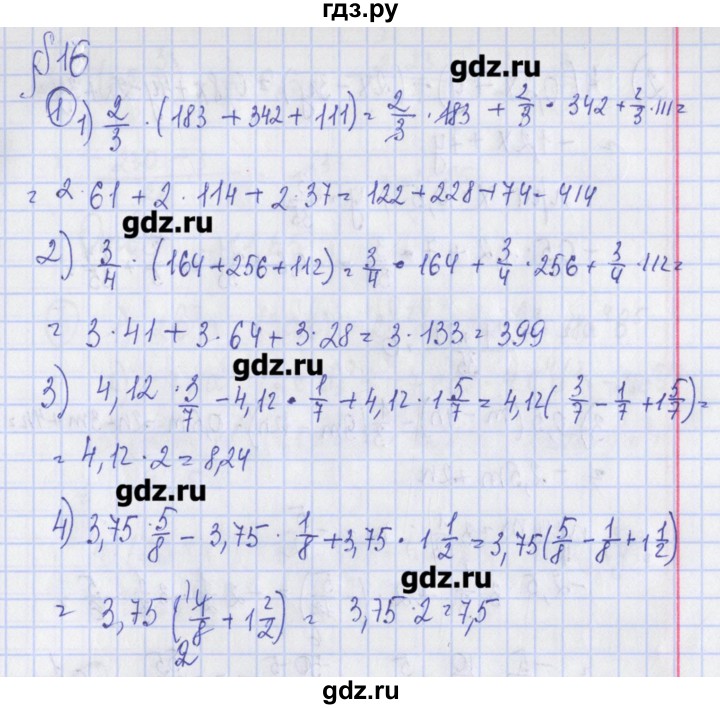 гдз.ру
§16
gdz.ru
1 1) 2/3 · (183 + 342 + 111) = 2/3 · 183 + 2/3 · 342 + 2/3 · 111 =
= 2·61 + 2·114 + 2·37 = 122 + 228 + 74 = 414
gdz.ru
2) 3/4 · (164 + 256 + 112) = 3/4 · 164 + 3/4 · 256 + 3/4 · 112 =
= 3·41 + 3·64 + 3·28 = 3·133 = 399
gdz.ru
3) 4,12 · 3/7 - 4,12 · 1/7 + 4,12 · 1 5/7 = 4,12 (3/7 - 1/7 + 1 5/7) =
= 4,12 · 2 = 8,24
gdz.ru
4) 3,75 · 5/8 - 3,75 · 1/8 + 3,75 · 1 1/2 = 3,75 (5/8 - 1/8 + 1 1/2)
gdz.ru
= 3,75 (4/8 + 1 2/2) = 3,75 · 2 = 7,5
1
2
gdz.ru